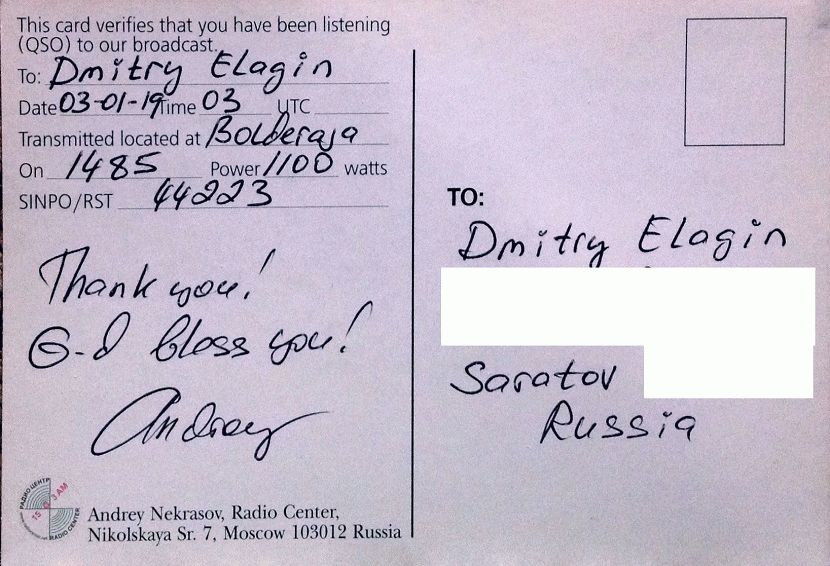 This card verifies that you have been listening
(QSO) to our broadcast.
To: Dmitry Elagin
Date 03-01-19 Time 03 UTC
Transmitted located at Bolderaja
On 1485 Power 1100 watts
SINPO/RST 44223
Thank you!
G-d bless you!
Andrey
РАДИО ЦЕНТР
RADIO CENTER
Andrey Nekrasov, Radio Center,
Nikolskaya Sr. 7, Moscow 103012 Russia
TO:
Dmitry Elagin
Saratov
Russia